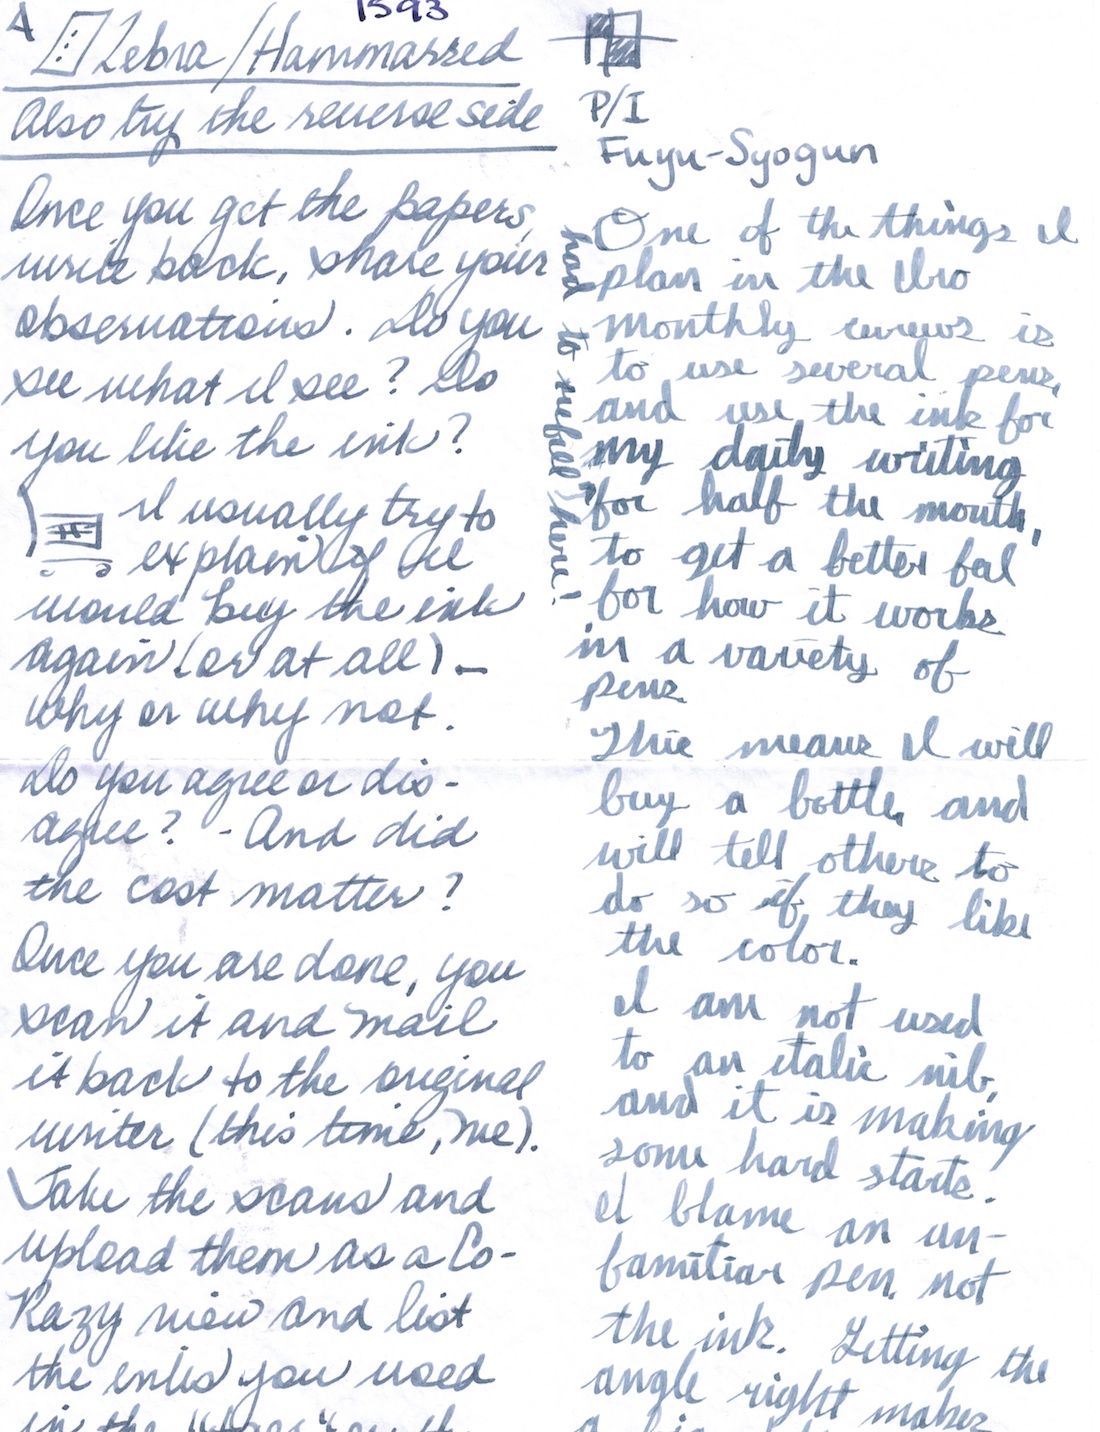 A
1593
Zebra/Hammarred
Also try the reverse side
Once you get the papers,
write back, share your
observations. Do you
see what I see? Do
you like the ink?
I usually try to
explain if I
would buy the ink
again (or at all) –
why or why not.
Do you agree or dis-
agree? - And did
the cost matter?
Once you are done, you
scan it and mail
it back to the original
writer (this time, me).
Take the scans and
upload them as a Co-
Razy view and list
the inks you used
in the
P/I
Fuyu-Syogun
One of the things I
plan in the Ibro
monthly reviews is
to use several pens,
and use the ink for
my daily writing
for half the month,
to get a better feel
for how it works
in a variety of
pens
had to refill here!
This means I will
buy a bottle, and
will tell others to
do so if they like
the color.
I am not used
to an italic nib,
and it is making
some hard starts.
I blame an un-
familiar pen, not
the ink. Getting the
angle right makes
a big